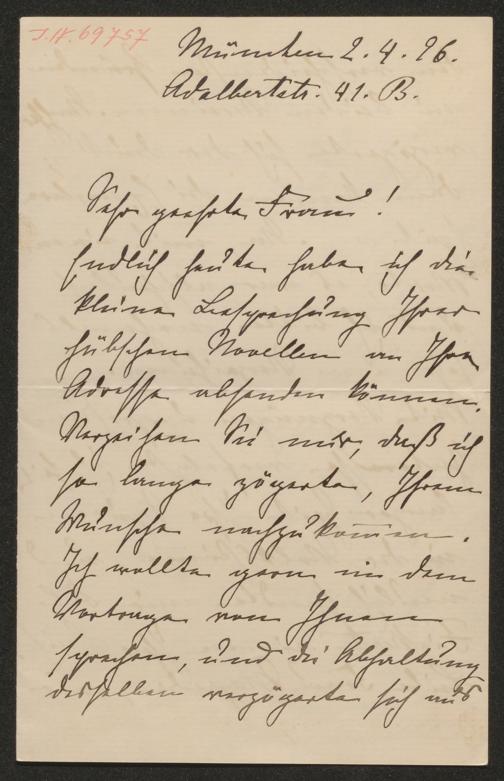 J.N. 69757
München 2.4.96.
Adalbertstr. 41. B.
Sehr geehrte Frau!
Endlich heute habe ich die
kleine Besprechung Ihrer
hübschen Novellen an Ihre
Adresse absenden können.
Verzeihen Sie mir, daß ich
so lange zögerte, Ihrem
Wunsche nachzukommen.
Ich wollte gern in dem
Vortrage von Ihnen
sprechen, und die Abhaltung
desselben verzögerte sich aus